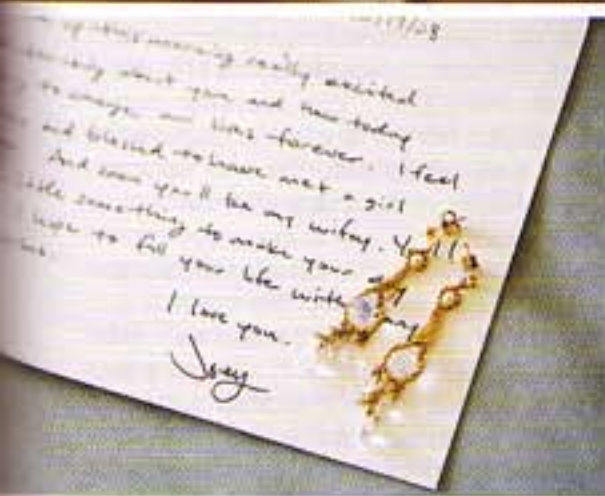 up this morning really excited
about you and how today
to change our lives forever. I feel
and blessed to have met a girl
And soon you'll be my wifey. You'll
something to make your day
hope to fill your life with
I love you.
Joey